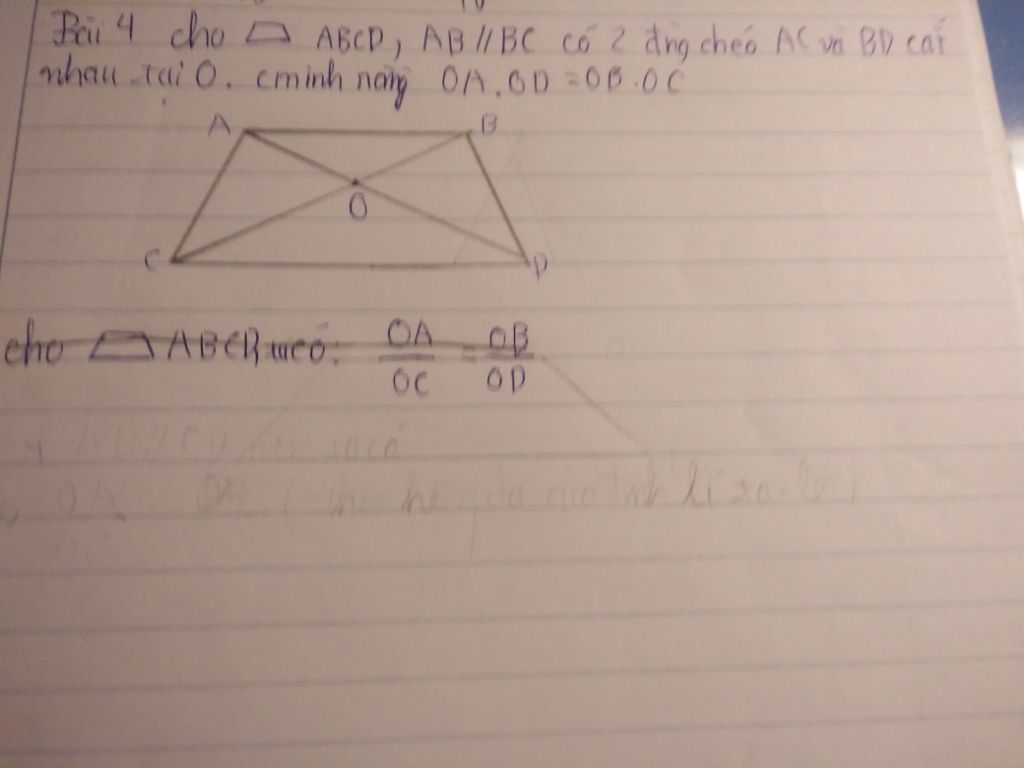 Bài 4 cho ABCD, AB//BC có 2 đng chéo AC và BD cắt
nhau tại O. cminh rằng OA.OD = OB.OC
A B
O
C D
cho ABCD, ta có: OA/OC = OB/OD
AB//CD nên ta có
OA